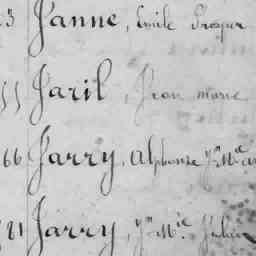 3 Janne, Emile Prosper
55 Jaril, Jean marie
66 Jarry, Alphonse Jn Mie
81 Jarry, Jn Mie